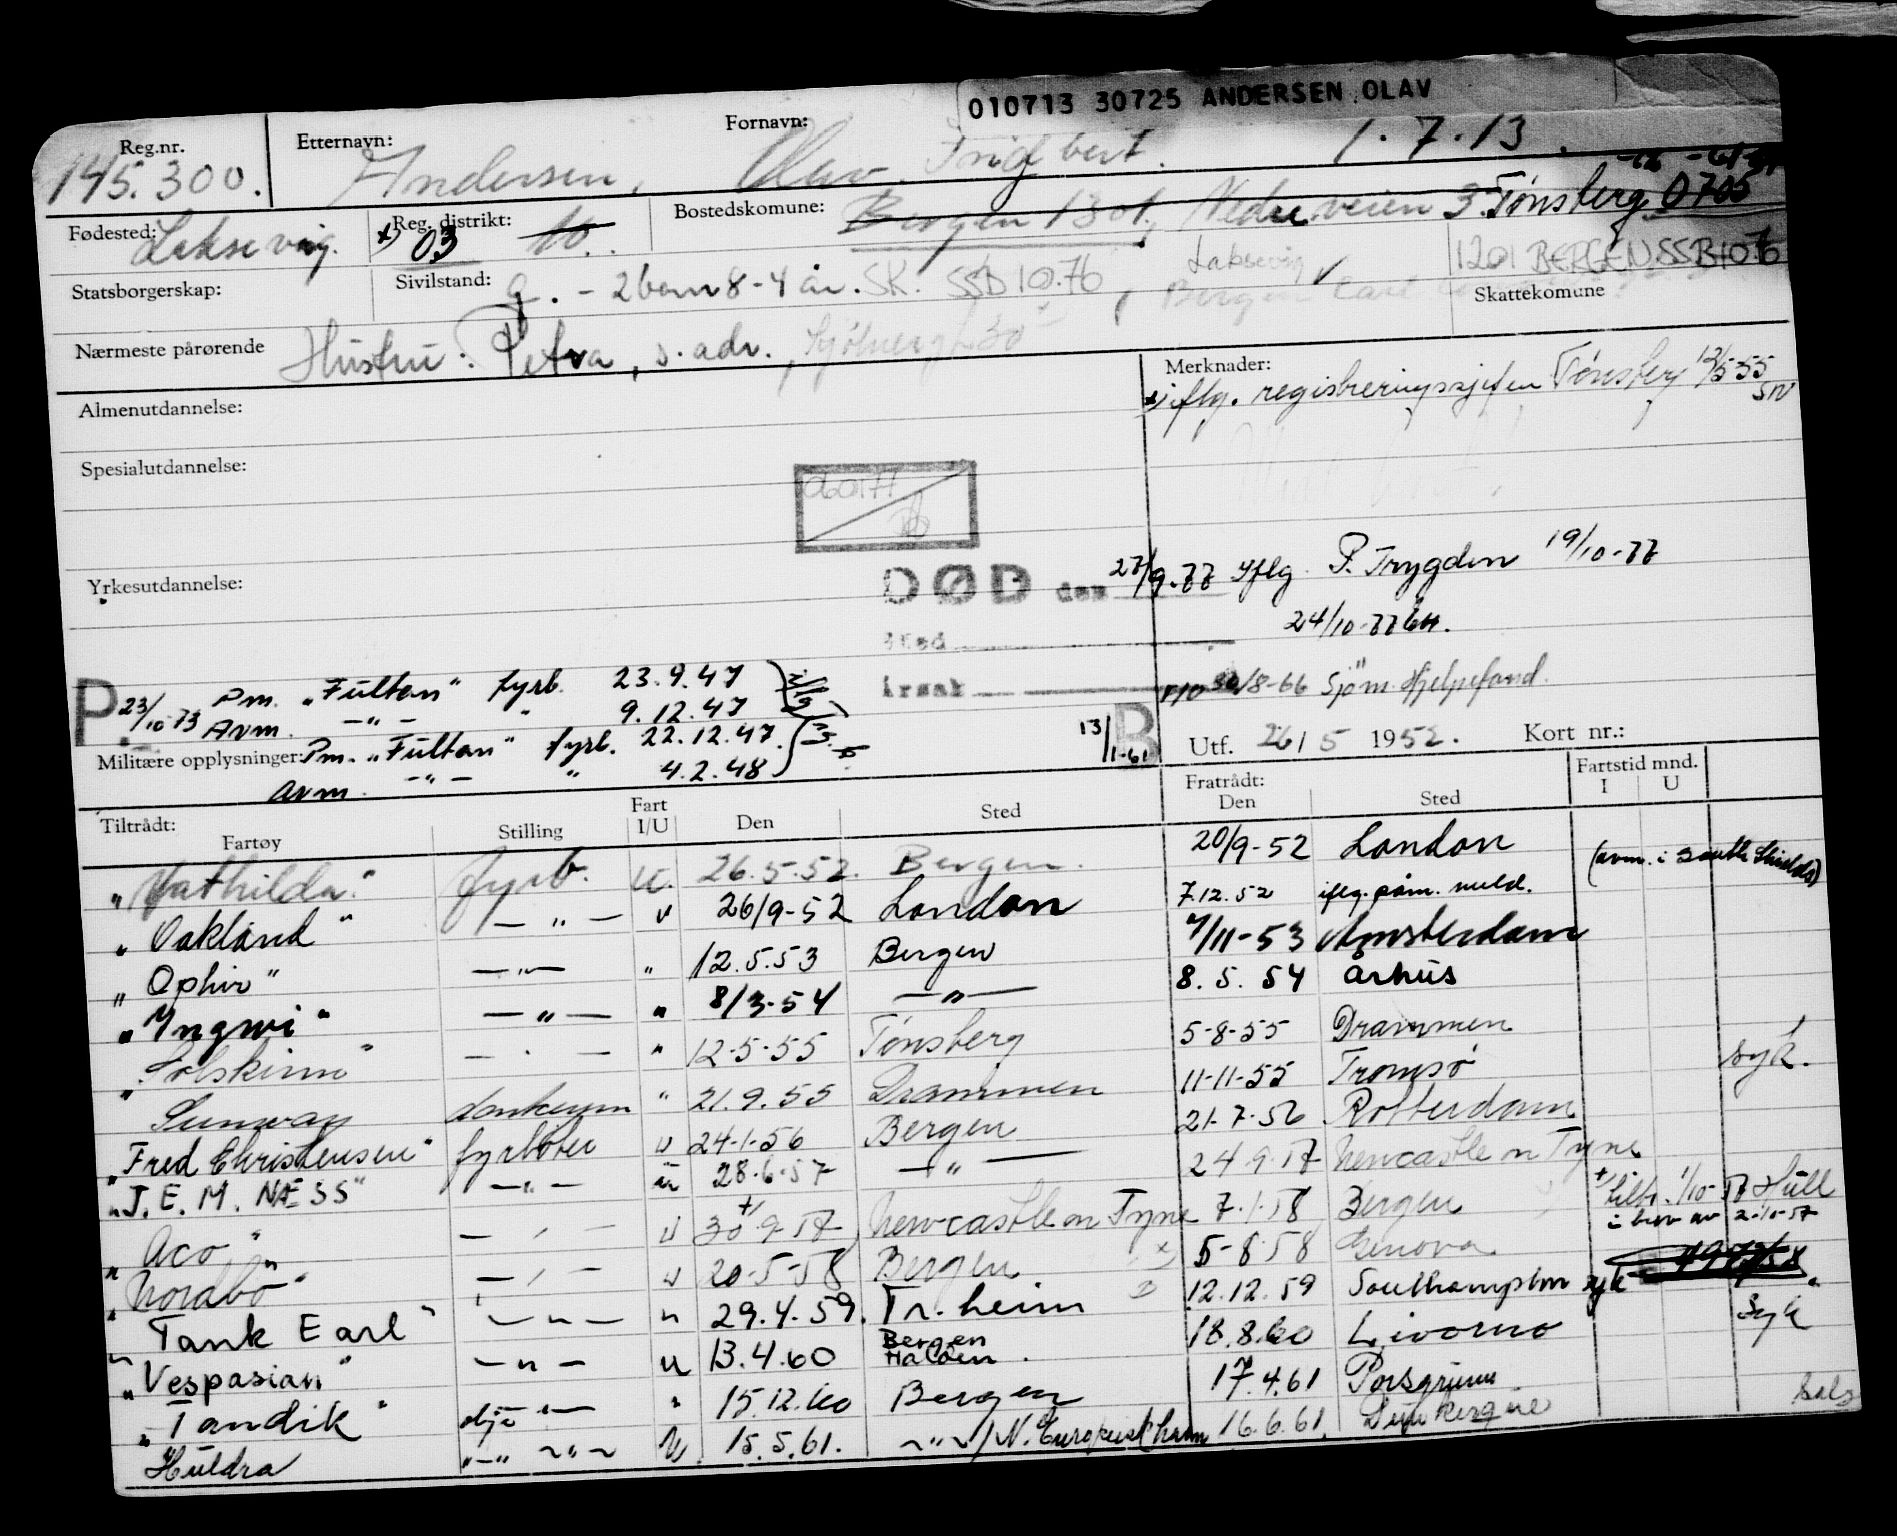 010713 30725 ANDERSEN, OLAV
Reg.nr. Etternavn: Fornavn:
145.300. Andersen, Olav Fridbert. 1.7.13.
Fødested: Reg. distrikt: Bostedskomune:
Laksevåg. x) 03 10. Bergen 1301, Nedre veien 3. Tønsberg 0705
Statsborgerskap: Sivilstand: g. - 2 barn 8-4 år. SK. SSB 10.76 Laksevåg Bergen 1201 BERGEN SSB 10.76
Skattekomune
Nærmeste pårørende Hustru: Petra, s. adr.
Merknader:
x) iflg. registreringssjefen Tønsberg 12/5-55 SN
Almenutdannelse:
Spesialutdannelse:
060177
Yrkesutdannelse:
DØD den 27/9.77 Iflg. P. Trygden 19/10-77
Sted 24/10-77
Årsak 8-66 Sjøm. Hjelpefond.
P. 23/10-73 Pm. "Fultan" fyrb. 23.9.47
Avm. -"- " 9.12.47
Militære opplysninger: Pm. "Fultan" fyrb. 22.12.47.
Avm. -"- " 4.2.48
13/1-61 B
Utf. 26/5 1952. Kort nr.:
Tiltrådt: Fratrådt: Fartstid mnd.
Fartøy Stilling Fart I/U Den Sted Den Sted I U
"Mathilda" fyrb. U. 26.5.52. Bergen. 20/9-52 London (avm. i South Shields)
"Oakland" -"- U 26/9-52 London 7.12.52 iflg. påm. meld.
"Ophir" -"- " 12.5.53 Bergen 7/11-53 Amsterdam
"Yngwi" -"- " 8/3-54 -"- 8.5.54 Århus
"Solskinn" -"- " 12-5-55 Tønsberg 5-8-55 Drammen
Sunway donkeym " 21.9.55 Drammen 11-11-55 Tromsø syk.
"Fred Christensen" fyrbøter U 24-1-56 Bergen 21-7-56 Rotterdam
"J.E.M. NÆSS" -"- U 28-6-57 -"- 24-9-57 Newcastle on Tyne
"Aco" -"- U 30-9-57 + Newcastle on Tyne 7-1-58 Bergen + tiltr. 1/10-57 Hull i brev av 2-10-57
"Nordbo" -"- U 20-5-58 Bergen 5-8-58 Genova
"Tank Earl" -"- " 29.4.59. Tr.heim 12.12.59 Southampton syk
"Vespasian" -"- U 13.4.60 Bergen Halden. 18.8.60 Livorno syk
"Tandik" olje -"- " 15.12.60 Bergen 17.4.61 Porsgrunn
Huldra -"- -"- U 15.5.61. -"- / N. Europeisk havn 16.6.61. Dunkerque